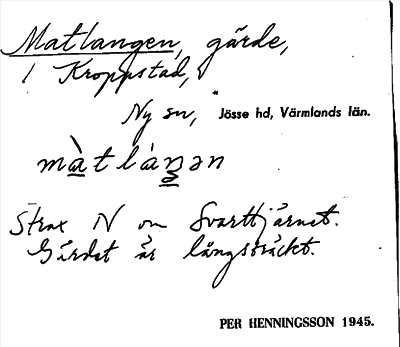 Matlangen, gärde,
i Kroppstad,
Ny sn, Jösse hd, Värmlands län.
màtlàŋən
Strax N om Svarttjärnet.
Gärdet är långsträckt.
PER HENNINGSSON 1945.